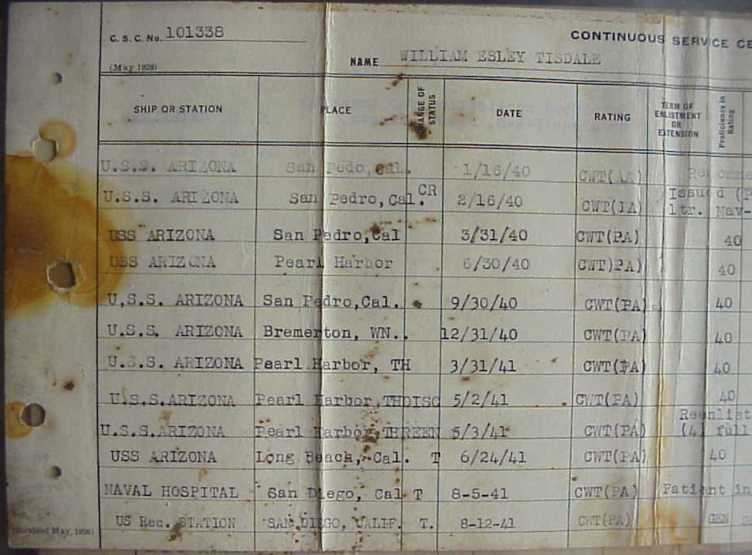 C. S. C. No. 101338
CONTINUOUS SERVICE CE
(May 1926)
NAME WILLIAM ESLEY TISDALE
SHIP OR STATION PLACE CHANGE OF STATUS DATE RATING TERM OF ENLISTMENT OR EXTENSION Proficiency in Rating
U.S.S. ARIZONA San Pedo, Cal. 1/16/40 CWT(AA)
U.S.S. ARIZONA San Pedro, Cal. CR 2/16/40 CWT(PA) Issued (P
ltr. Nav-
USS ARIZONA San Pedro,Cal 3/31/40 CWT(PA) 40
USS ARIZONA Pearl Harbor 6/30/40 CWT)PA) 40
U,S.S. ARIZONA San Pedro,Cal. 9/30/40 CWT(PA) 40
U.S.S. ARIZONA Bremerton, WN.. 12/31/40 CWT(PA) 40
U.S.S. ARIZONA Pearl Harbor, TH 3/31/41 CWT(PA) 40
U.S.S.ARIZONA Pearl Harbor,TH DISC 5/2/41 CWT(PA) 40
Reenlist
U.S.S.ARIZONA Pearl Harbor,TH REEN 5/3/41 CWT(PA) (4) full
USS ARIZONA Long Beach, Cal. T 6/24/41 CWT(PA) 40
NAVAL HOSPITAL San Diego, Cal T 8-5-41 CWT(PA) Patient in
US Rec. STATION SAN DIEGO, CALIF. T. 8-12-41 CWT(PA) GEN